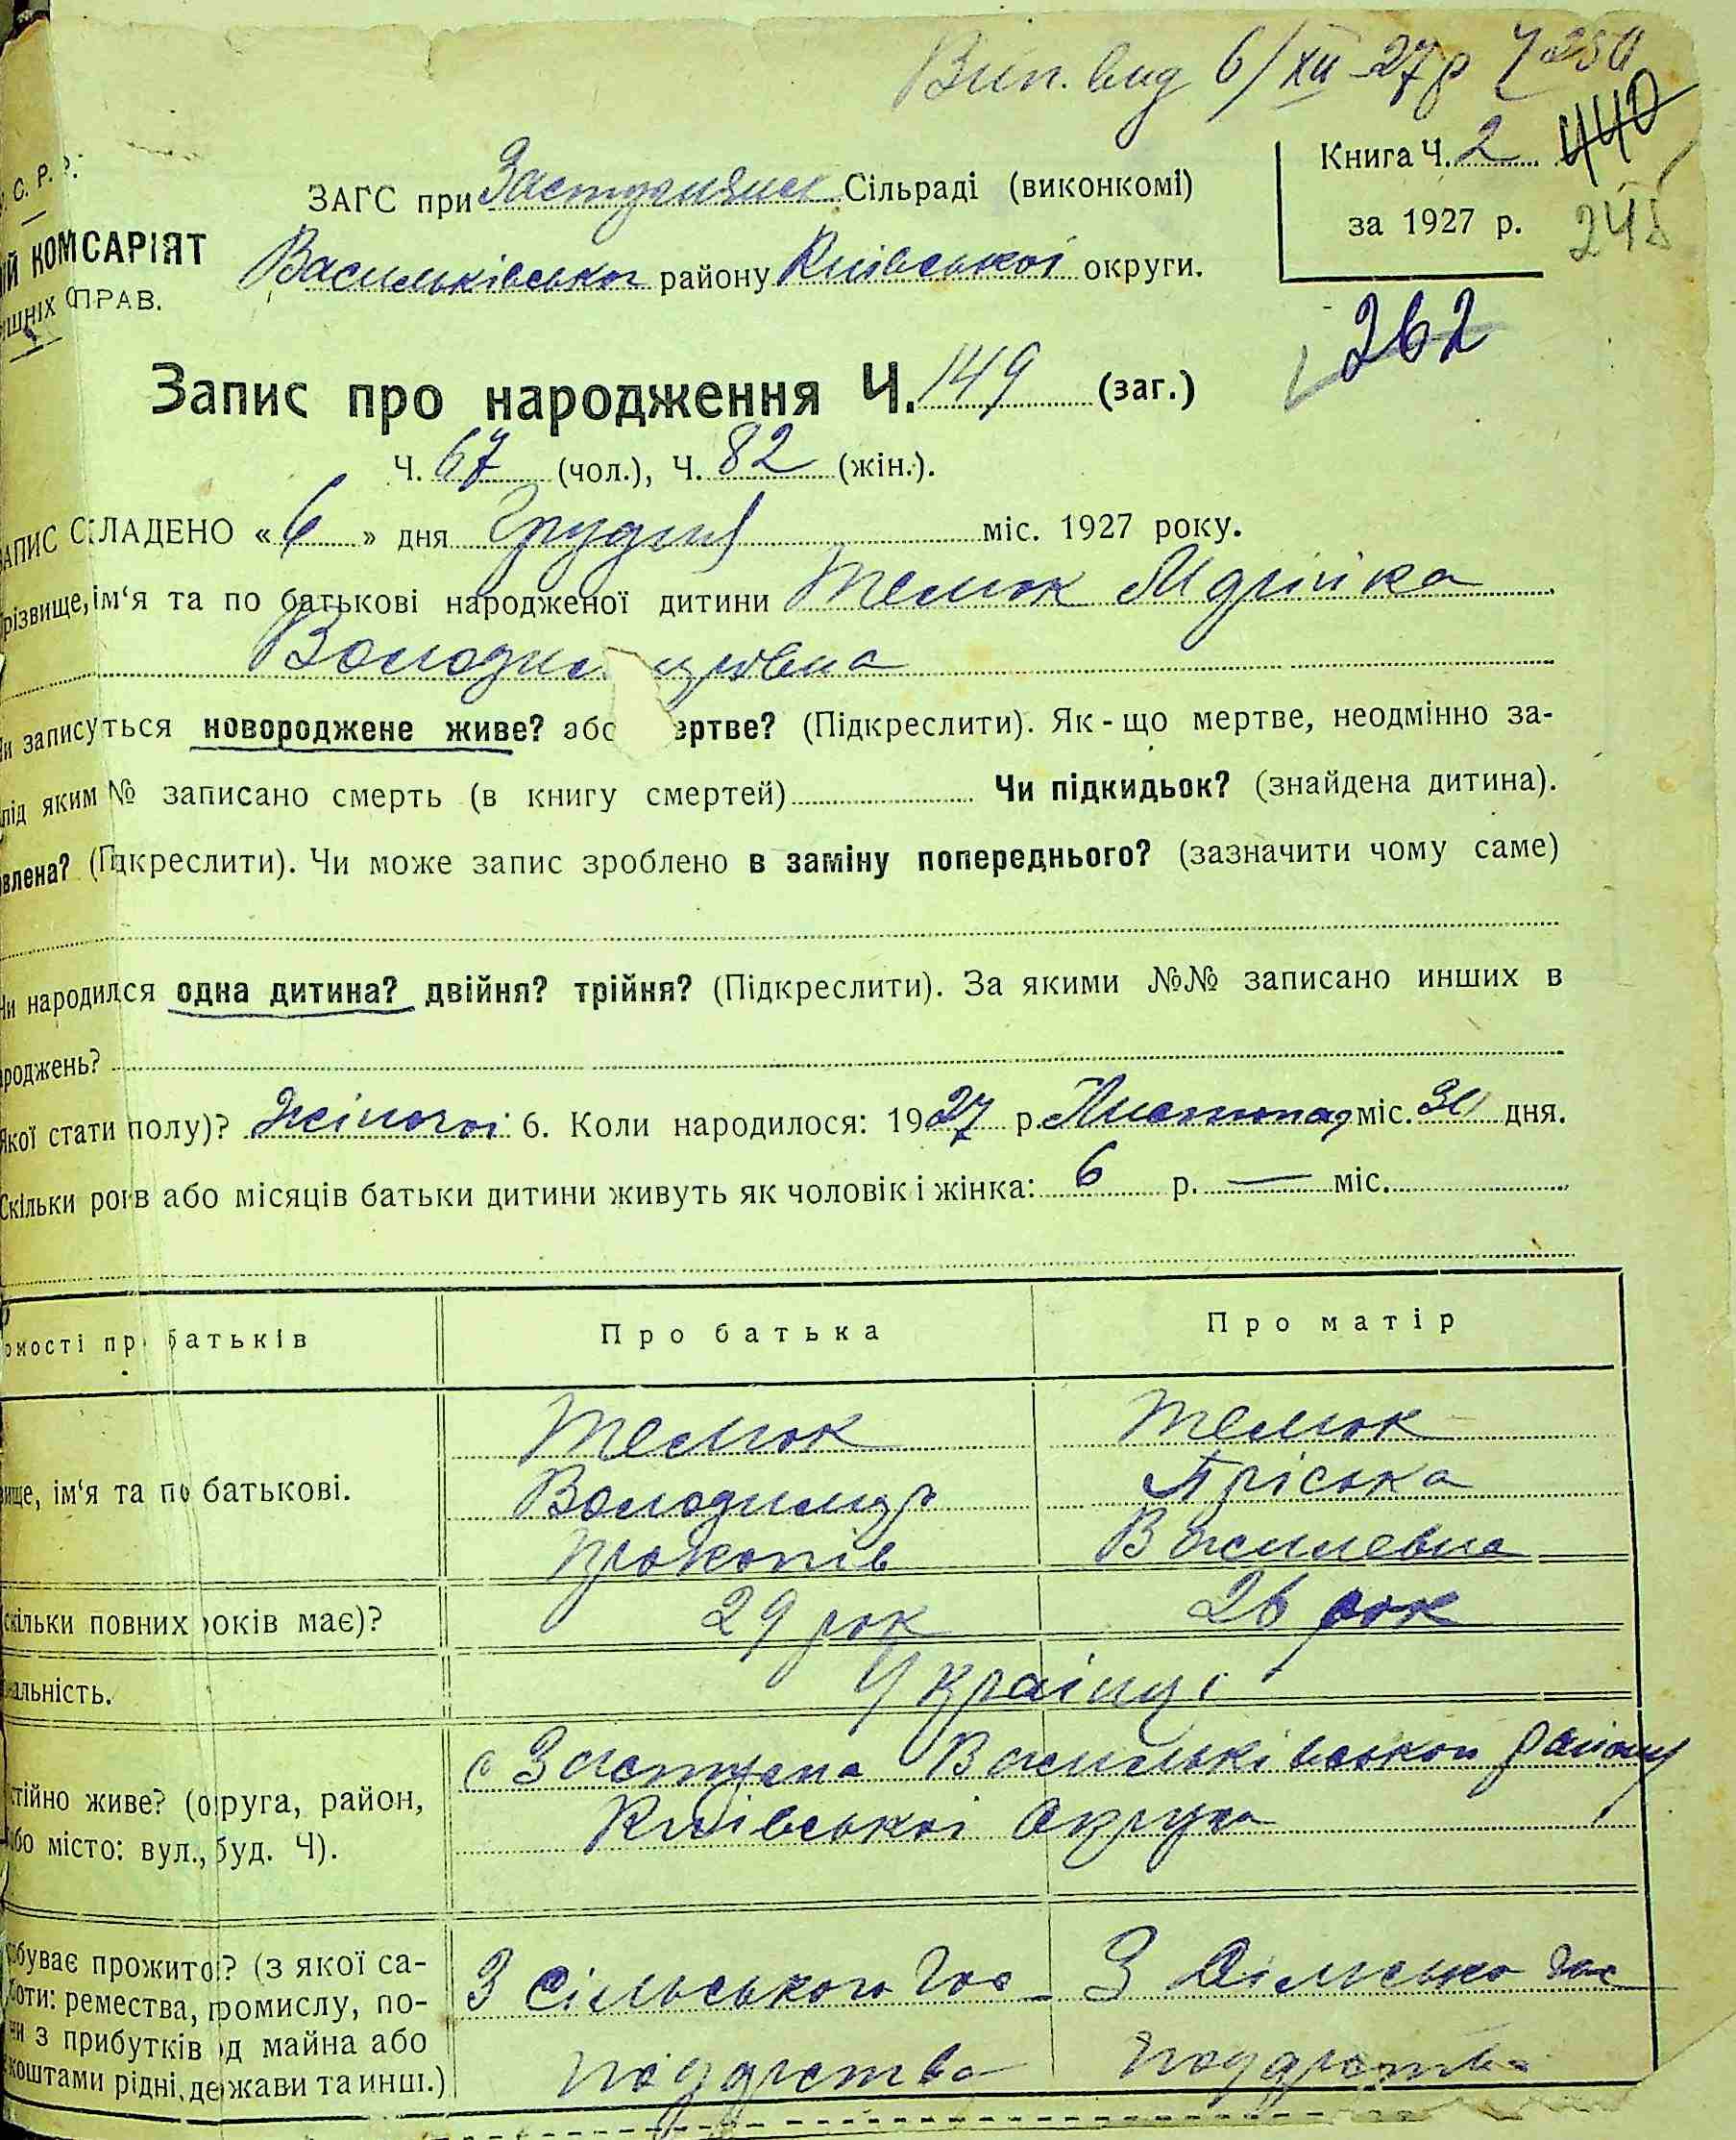 Вип. вид 6/XII-27р Ч 250
440
Книга Ч. 2
за 1927 р.
248
262
С. Р. Р.
КОМІСАРІЯТ
ПРАВ.
ЗАГС при Застугнянск Сільраді (виконкомі)
Васильківськог району Київської округи.
Запис про народження Ч. 149 (заг.)
Ч. 67 (чол.), Ч. 82 (жін.).
ЗАПИС СКЛАДЕНО «6» дня Грудня міс. 1927 року.
різвище, ім‘я та по батькові народженої дитини Темюк
Володим ровна
и записується новороджене живе? або ертве? (Підкреслити). Як-що мертве, неодмінно за-
під яким № записано смерть (в книгу смертей) Чи підкидьок? (знайдена дитина).
влена? (Підкреслити). Чи може запис зроблено в заміну попереднього? (зазначити чому саме)
Чи народилася одна дитина? двійня? трійня? (Підкреслити). За якими №№ записано инших в
роджень?
Якої стати полу)? Жіночої 6. Коли народилося: 1927 р. Листопад міс. 30 дня.
Скільки років або місяців батьки дитини живуть як чоловік і жінка: 6 р. — міс.
омості пр батьків
Про батька
Про матір
вище, ім‘я та по батькові.
Темюк
Володимир
Прокопів
Темюк
Пріська
Василевна
скільки повних років має)?
29 рок
26 рок
альність.
Українці
стійно живе? (округа, район,
або місто: вул., буд. Ч).
с Застугна Васильківськои району
Київської Округи
обуває прожиток? (з якої са-
боти: ремества, промислу, по-
ни з прибутків од майна або
коштами рідні, держави та инш.)
З сільського гос
подарства
З сільсько гос
подарства